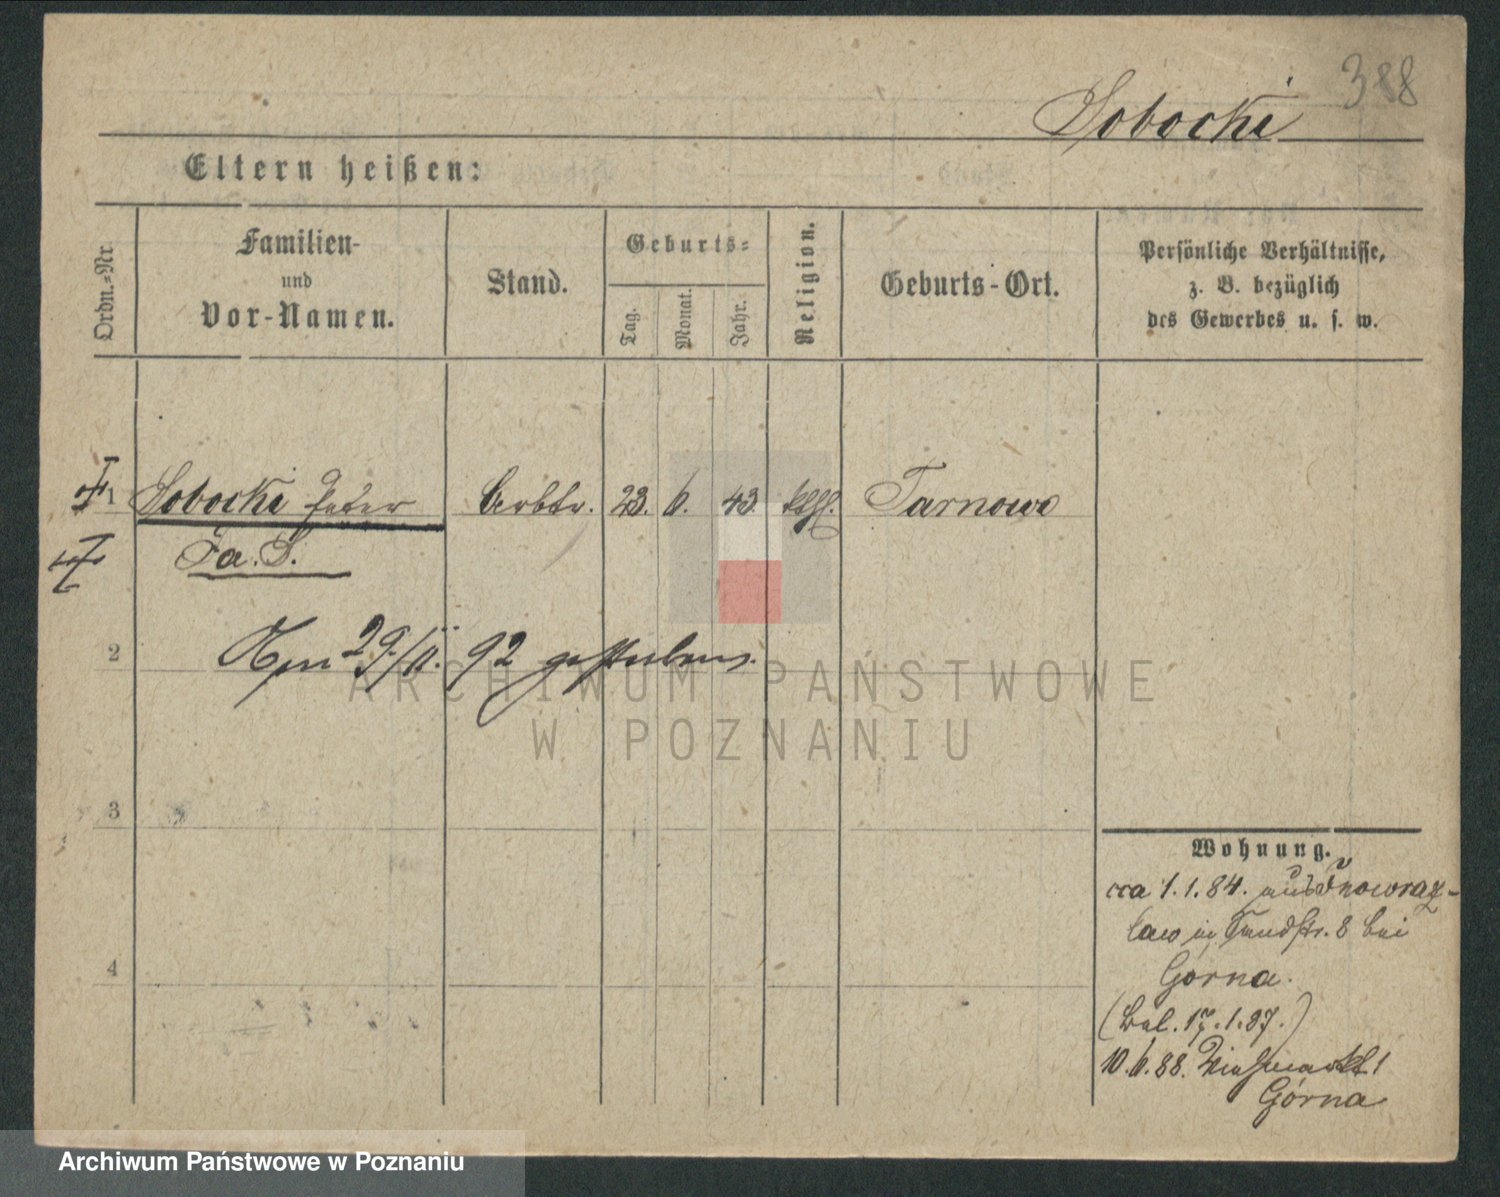 388
Sobocki
Eltern heißen:
Ordn.=Nr.
Familien-
und
Vor-Namen.
Stand.
Geburts=
Tag.
Monat.
Jahr.
Religion.
Geburts-Ort.
Persönliche Verhältnisse,
z. B. bezüglich
des Gewerbes u. s. w.
1 Sobocki Peter Arbtr. 23. 6. 43. kth. Tarnowo
Fa. S.
2
Am 29/II. 92 gestorben.
ARCHIWUM PAŃSTWOWE
W POZNANIU
3
Wohnung.
cca 1.1.84. aus Inowraz-
law in Sandstr. 8 bei
Górna.
4
(Bal. 17.1.87.)
10.6.88. Viehmarkt 1
Górna
Archiwum Państwowe w Poznaniu